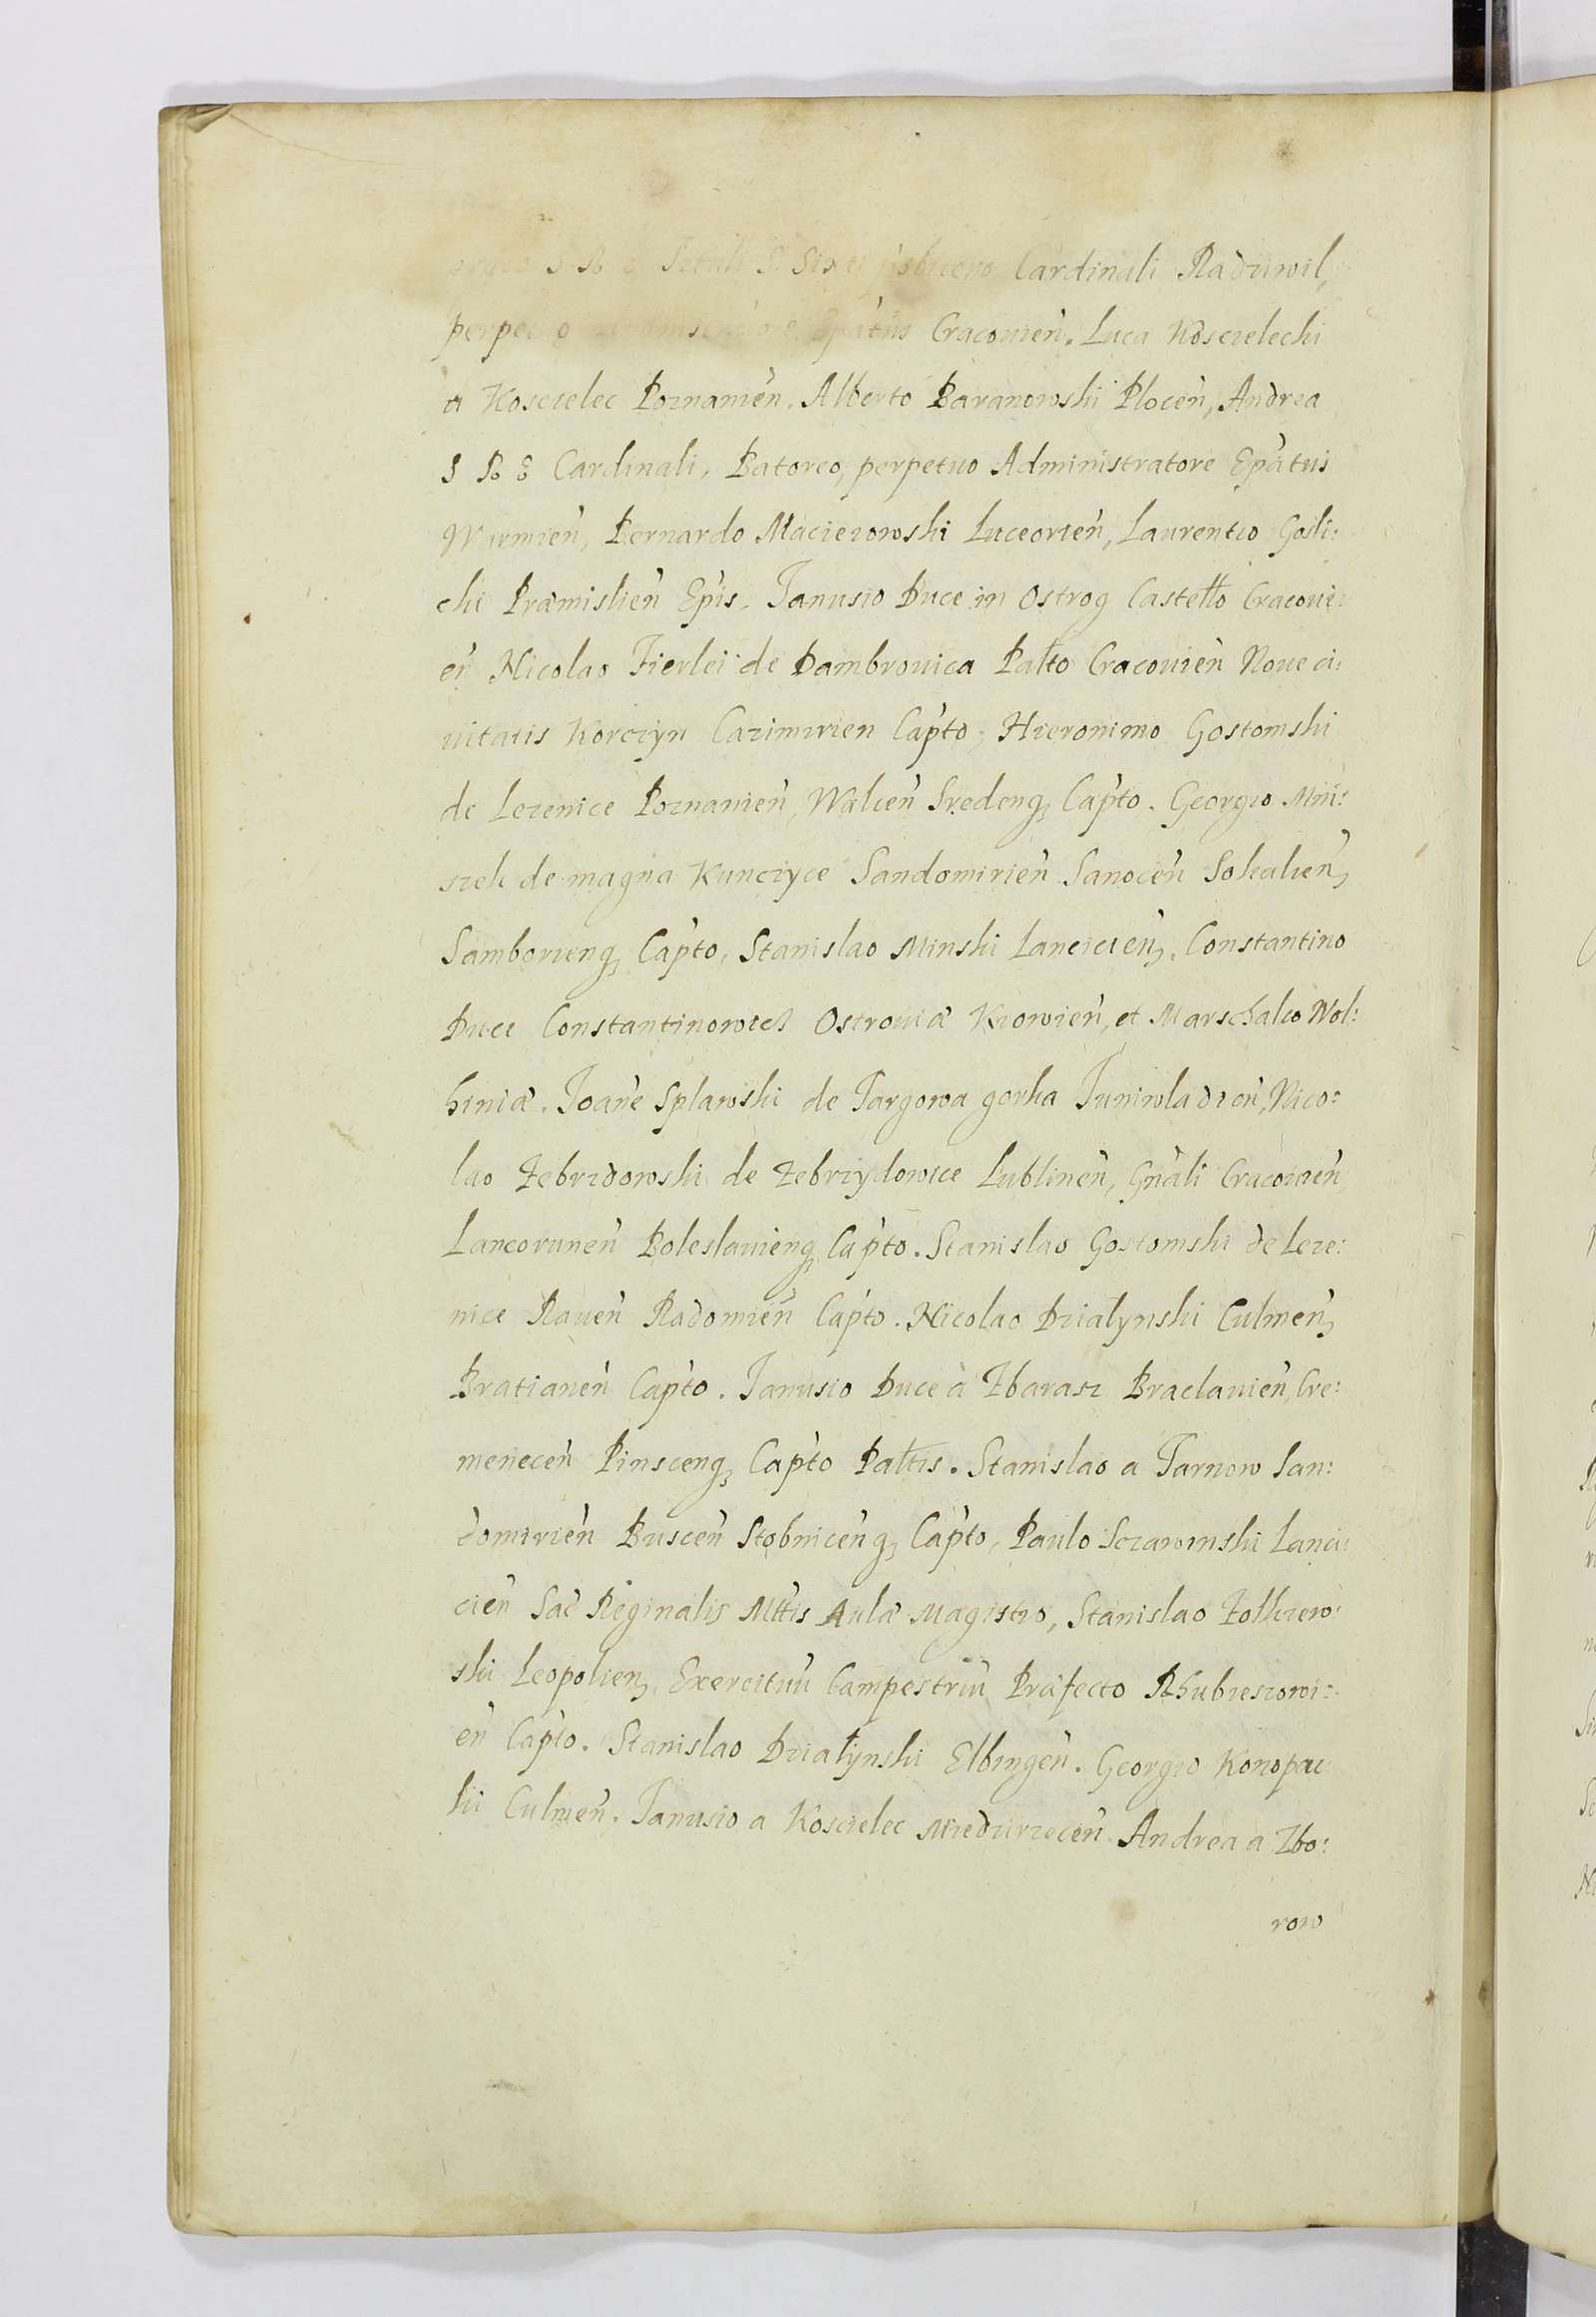 S R E Tituli S. Sixti pr̃sbitero Cardinali Radziwil,
Epàtus Cracouien̄. Luca Koscielecki
a Koscielec Poznanien̄. Alberto Baranowski Plocen̄, Andrea
S R E Cardinali, Batoreo, perpetuo Administratore Epàtus
Warmien̄, Bernardo Macieiowski Luceorien̄, Laurentio Gosli:
cki Præmislien̄ Epis. Janusio Duce in Ostrog Castełło Cracoui:
en̄ Nicolao Fierleÿ de Dambrouica Pałto Cracouien̄ Noue ci:
uitatis Korczyn Cazimirien Capto, Hieronimo Gostomski
de Lezenice Poznanien̄, Walcen̄ Sredenq₃ Capto. Georgio Mni:
szek de magna Kunczyce Sandomirien̄ Sanocen̄ Sokalien̄,
Samborienq₃ Capto, Stanislao Minski Lancicien̄, Constantino
Duce Constantinowicz Ostrouiæ Kiowien̄, et Marschalco Wol:
hiniæ. Joan̄e Splawski de Targowa gorka Juniwladien̄, Nico:
lao Zebrzdowski de Zebrzydowice Lublinen̄, Gn̄ali Cracouien̄
Lancorunen̄ Boleslauienq₃ Capto. Stanislao Gostomski de Leze:
nice Rauen̄ Radomien̄ Capto. Nicolao Dzialynski Culmen̄,
Bratianen̄ Capto. Janusio Duce à Zbarasz Braclauien̄, Cre:
menecen̄ Pinscenq₃ Capto Pałtis. Stanislao a Tarnow San:
domirien̄ Buscen̄ Stobnicenq₃ Capto, Paulo Sczawinski Lanci:
cien̄ Sac̄ Reginalis Mttis Aulæ Magistro, Stanislao Zolkiew:
ski Leopolien̄, Exercituū Campestriū Præfecto Rhubieszowi:
en̄ Capto. Stanislao Dzialynski Elbingen̄. Georgio Konopac
ki Culmen̄. Janusio a Koscielec Miedzirzecen̄ Andrea a Zbo:
row